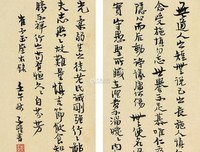 無道人之短無說己之長施人慎
勿念受施慎勿忘世譽不足慕唯仁為紀綱
隱心而後動謗議庸何傷無使名過
實守愚聖所臧在涅貴不淄曖曖內含
光柔弱生之徒老氏誡剛強行行鄙
夫志悠悠故難量慎言節飲食知足
勝不祥行之苟有恆久久自芬芳
崔子玉座右銘